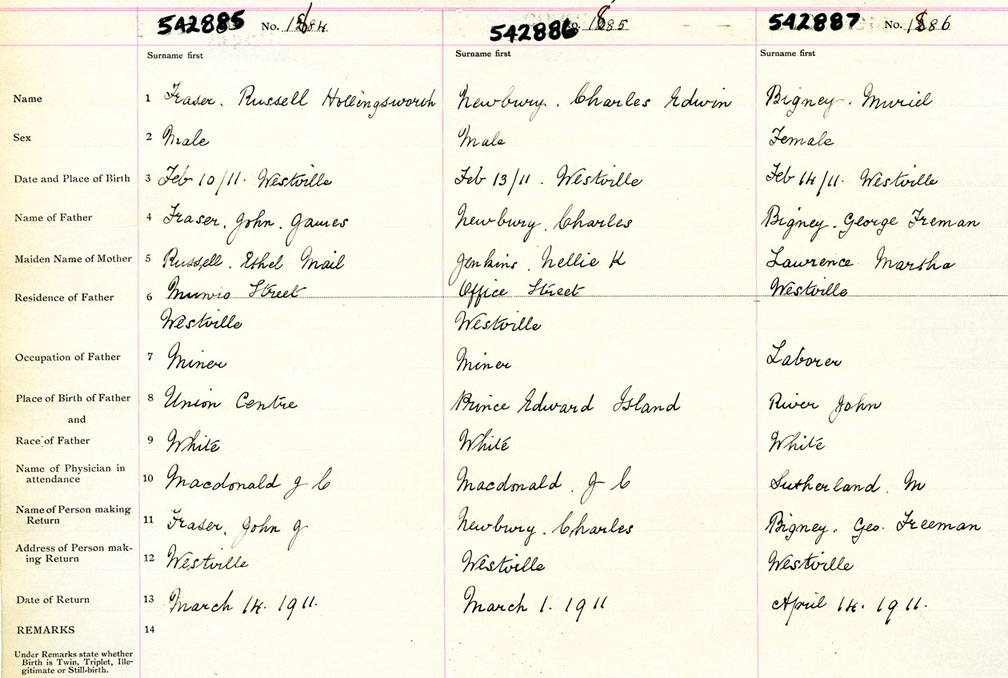 542885 No. 1884 542886 No. 1885 542887 No. 1886
Surname first Surname first Surname first
Name 1 Fraser. Russell Hollingsworth Newbury. Charles Edwin Bigney. Muriel
Sex 2 Male Male Female
Date and Place of Birth 3 Feb 10/11. Westville Feb 13/11. Westville Feb 14/11. Westville
Name of Father 4 Fraser, John. James Newbury. Charles Bigney. George Freman
Maiden Name of Mother 5 Russell. Ethel Mail Jenkins. Nellie K Lawrence Marsha
Residence of Father 6 Munro Street Office Street Westville
Westville Westville
Occupation of Father 7 Miner Miner Laborer
Place of Birth of Father 8 Union Centre Prince Edward Island River John
and
Race of Father 9 White White White
Name of Physician in
attendance 10 Macdonald J C Macdonald. J C Sutherland. M
Name of Person making
Return 11 Fraser, John J Newbury. Charles Bigney. Geo. Freeman
Address of Person mak-
ing Return 12 Westville Westville Westville
Date of Return 13 March 14. 1911. March 1. 1911 April 14. 1911.
REMARKS 14
Under Remarks state whether
Birth is Twin, Triplet, Ille-
gitimate or Still-birth.